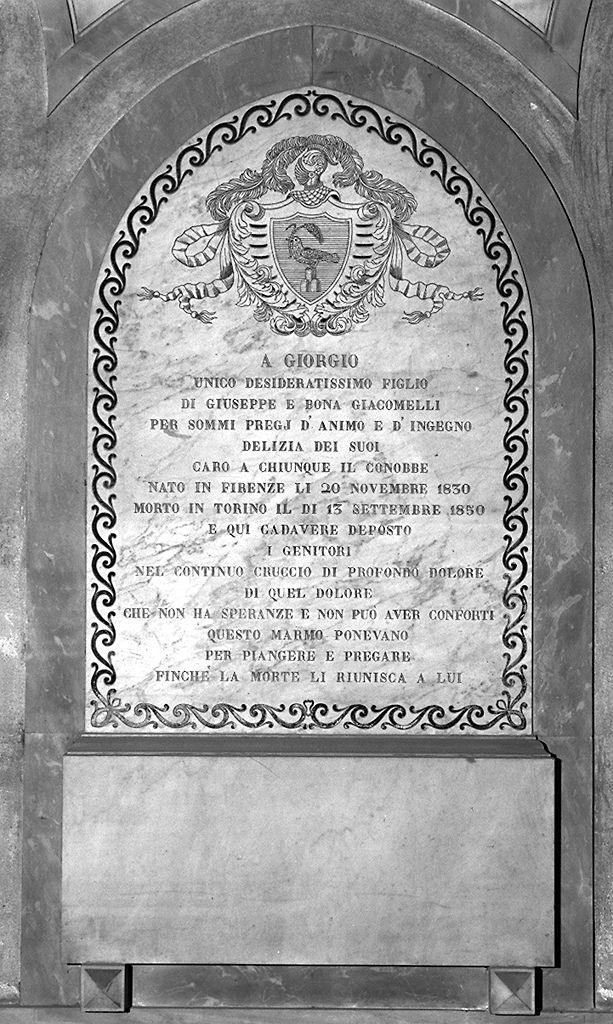 A GIORGIO
UNICO DESIDERATISSIMO FIGLIO
DI GIUSEPPE E BONA GIACOMELLI
PER SOMMI PREGJ D'ANIMO E D'INGEGNO
DELIZIA DEI SUOI
CARO A CHIUNQUE IL CONOBBE
NATO IN FIRENZE LI 20 NOVEMBRE 1830
MORTO IN TORINO IL DI 13 SETTEMBRE 1850
E QUI CADAVERE DEPOSTO
I GENITORI
NEL CONTINUO CRUCCIO DI PROFONDO DOLORE
DI QUEL DOLORE
CHE NON HA SPERANZE E NON PUÓ AVER CONFORTI
QUESTO MARMO PONEVANO
PER PIANGERE E PREGARE
FINCHÉ LA MORTE LI RIUNISCA A LUI